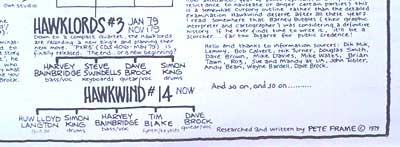 HAWKLORDS #3 JAN 79
NOV 1178
Down to a compact quartet, the Hawklords
are recording a new single and planning their
new move. 'PXR5' (CDS 4016 - May 79) is
finally released. The end...or a new beginning?
HARVEY BAINBRIDGE bass/voc
STEVE SWINDELLS keyboards
DAVE BROCK guitar/voc
SIMON KING drums
HAWKWIND #14 NOW
HUW LLOYD LANGTON guitar
SIMON KING drums
HARVEY BAINBRIDGE bass/voc
TIM BLAKE synth/keybds
DAVE BROCK guitar/voc
resistance to navigate or anger certain parties) this
is a somewhat cursory outline rather than the standard
examination Hawkwind deserve after all these years.
I read somewhere that Barney Bubbles (their graphic
interpreter and photographer) was considering a definitive
history. If he ever finds time to write it, it'll be a
scorcher. Far too bizarre for public credence!
Hello and thanks to information sources: Dik Mik,
Lemmy, Bob Calvert, Nik Turner, Douglas Smith,
Dave Brown, Mike Davies, Mike Watts, Brian
Tawn, Roy, Sue and Mandy at UA, John Tobler,
Andy Bean, Wayne Bardell, Dave Brock.
And so on, and so on............
Researched and written by PETE FRAME © 1979